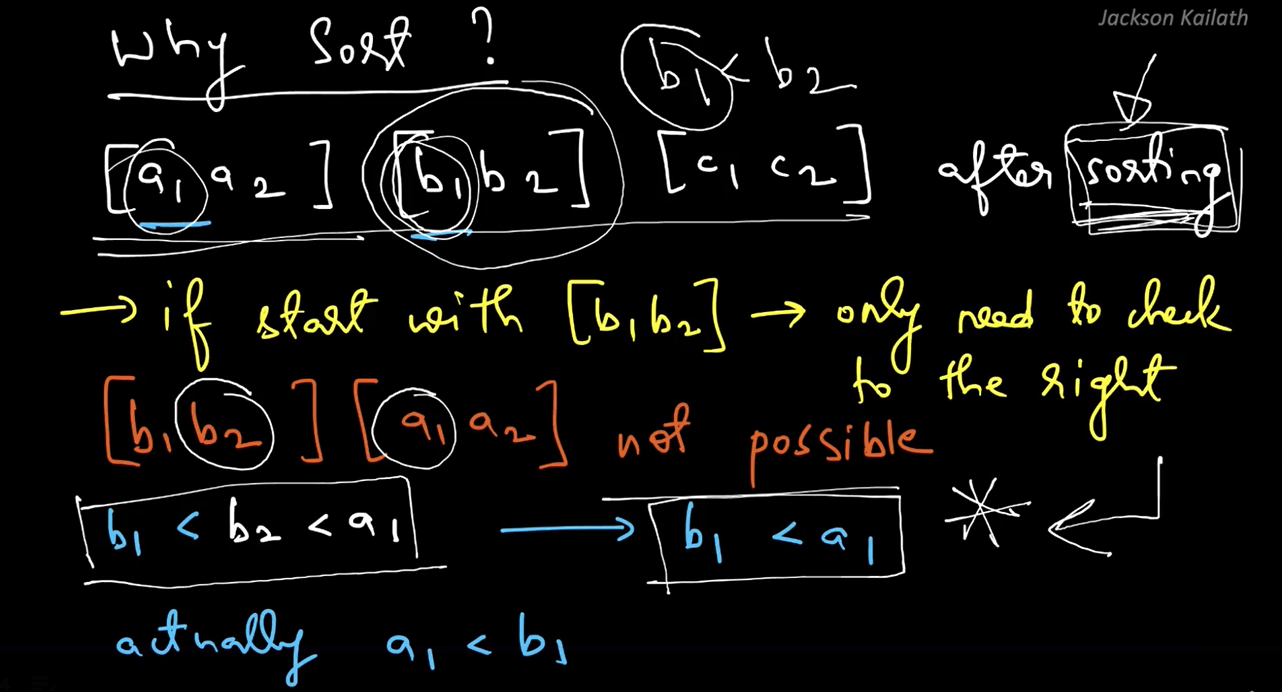 Jackson Kailath
Why Sort ?
b1 < b2
[a1 a2] [b1 b2] [c1 c2] after sorting
→ if start with [b1 b2] → only need to check
to the right
[b1 b2] [a1 a2] not possible
b1 < b2 < a1 → b1 < a1 *
actually a1 < b1